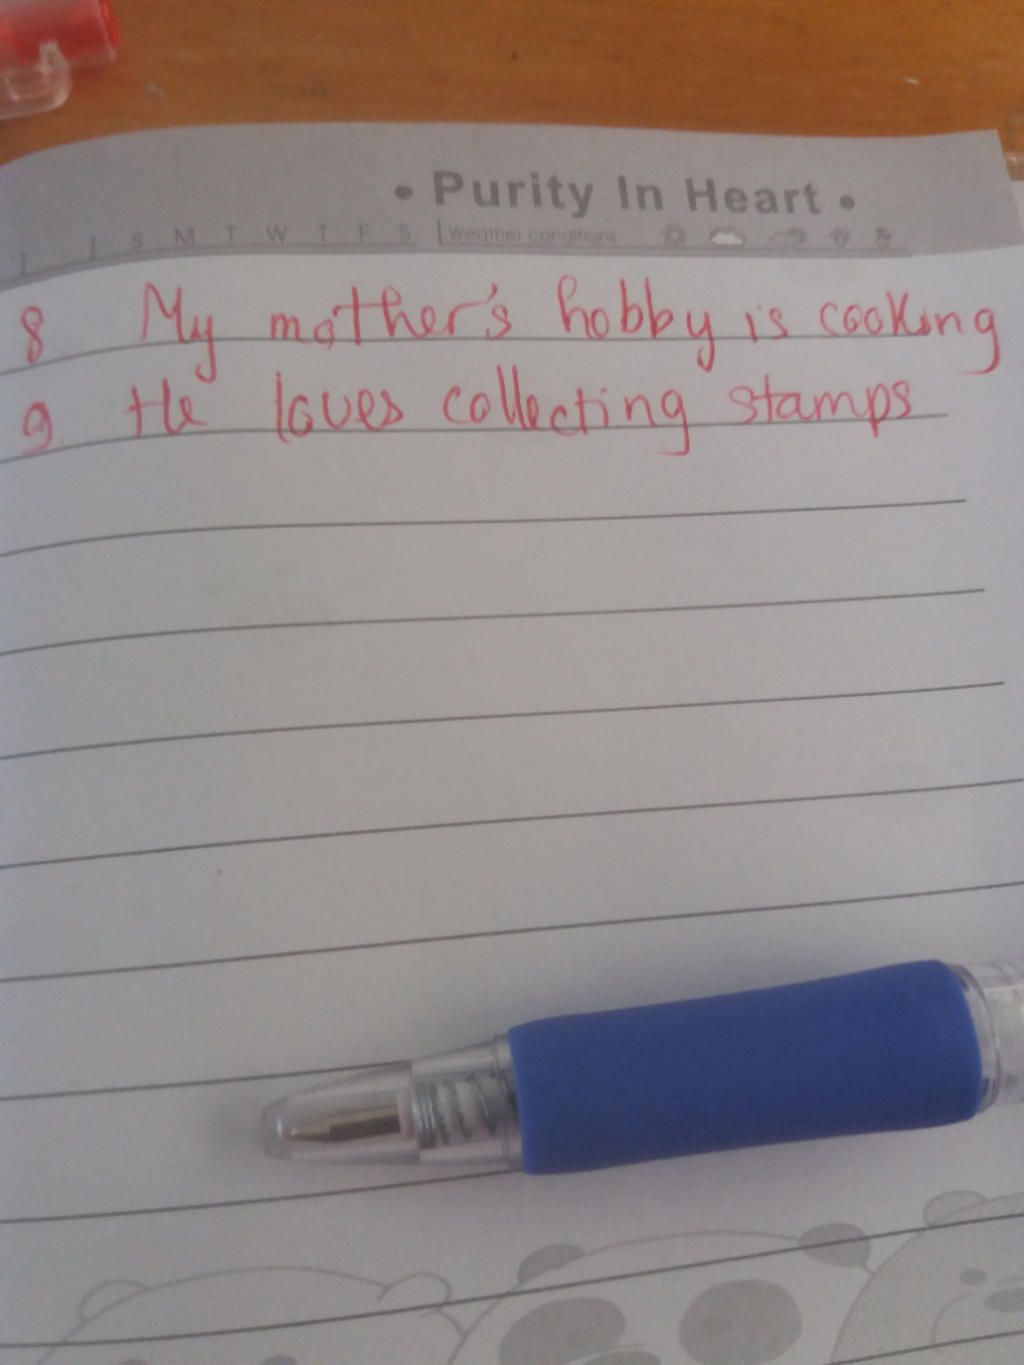 • Purity In Heart •
S M T W T F S | Weather conditions
8 My mother's hobby is cooking
9 He loves collecting stamps